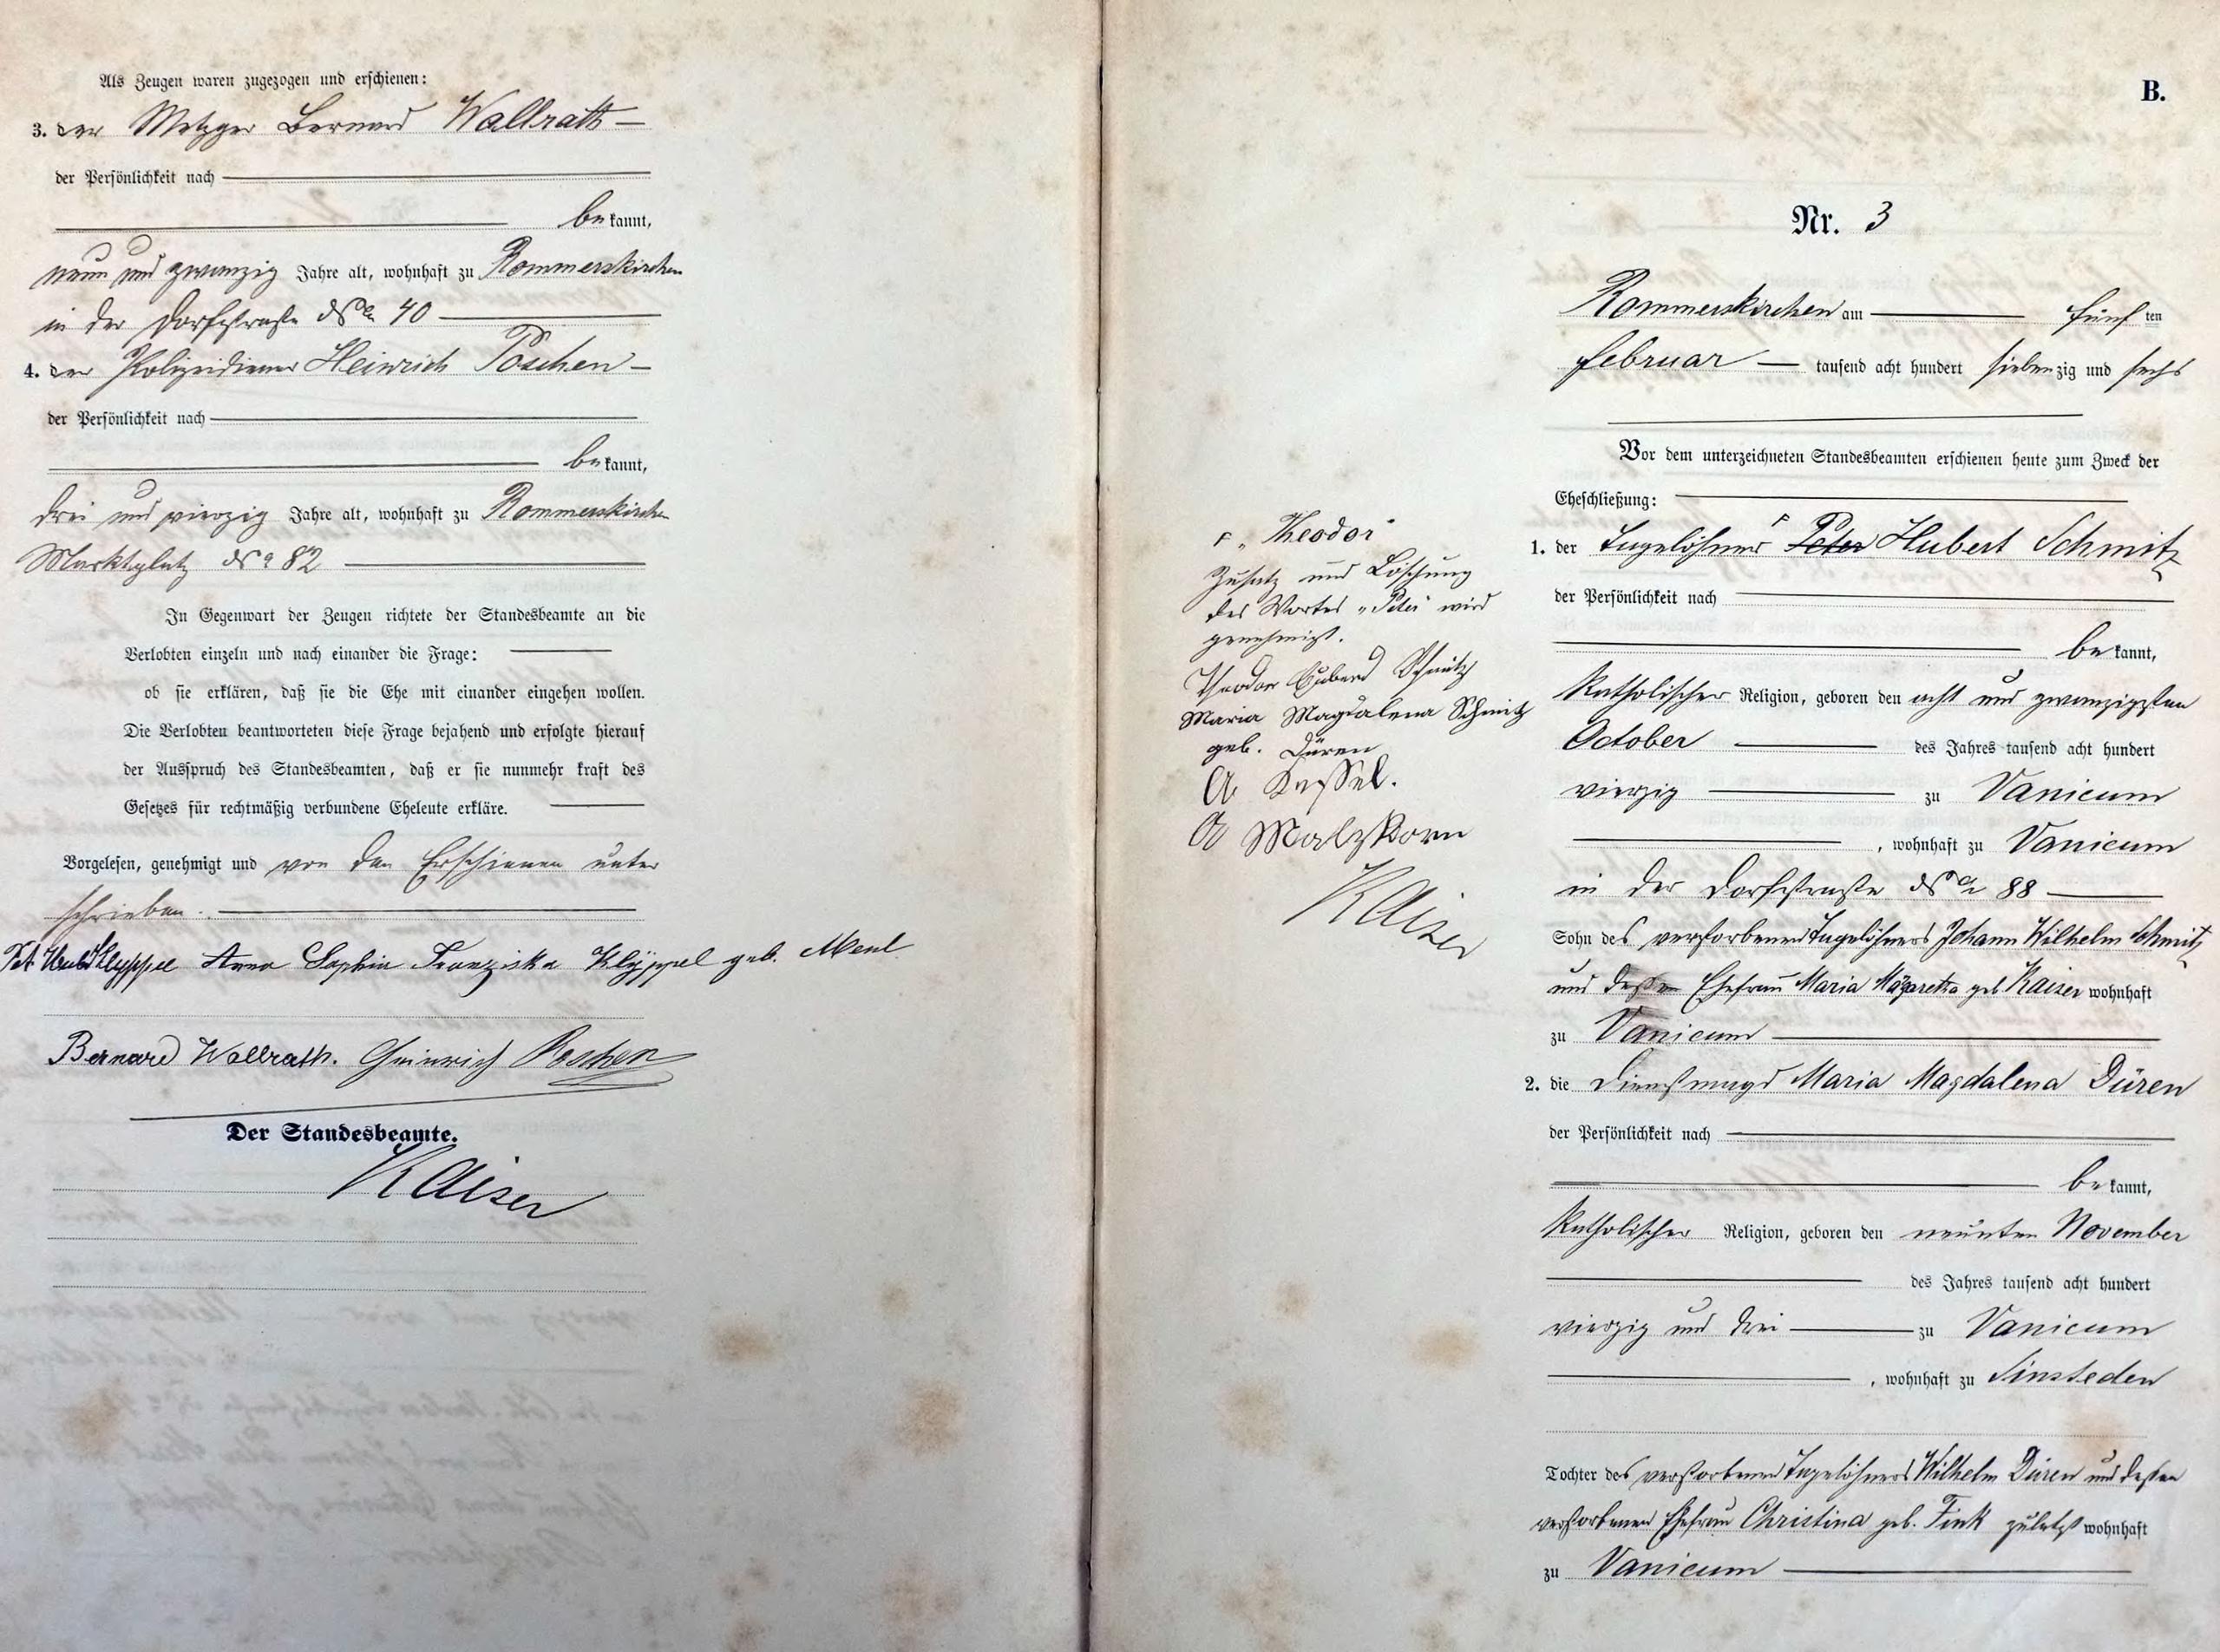 Als Zeugen waren zugezogen und erschienen:
3. der Metzger Bernard Wallrath —
der Persönlichkeit nach
be kannt,
neun und zwanzig Jahre alt, wohnhaft zu Rommerskirchen
in der Dorfstraße No 40
4. der Polizeidiener Heinrich Poschen —
der Persönlichkeit nach
be kannt,
drei und vierzig Jahre alt, wohnhaft zu Rommerskirchen
Marktplatz No 82
In Gegenwart der Zeugen richtete der Standesbeamte an die
Verlobten einzeln und nach einander die Frage:
ob sie erklären, daß sie die Ehe mit einander eingehen wollen.
Die Verlobten beantworteten diese Frage bejahend und erfolgte hierauf
der Ausspruch des Standesbeamten, daß er sie nunmehr kraft des
Gesetzes für rechtmäßig verbundene Eheleute erkläre.
Vorgelesen, genehmigt und von den Erschienen unter
schrieben.
Pet Hubt Klyppel Anna Sophia Franziska Klÿppel geb. Meul
Bernard Wallrath. Heinrich Poschen
Der Standesbeamte.
Kaiser
B.
Nr. 3
Rommerskirchen am fünf ten
Februar — tausend acht hundert siebenzig und sechs
Vor dem unterzeichneten Standesbeamten erschienen heute zum Zweck der
Eheschließung:
1. der Tagelöhner ┌ Peter Hubert Schmitz
der Persönlichkeit nach
be kannt,
katholischer Religion, geboren den acht und zwanzigsten
October des Jahres tausend acht hundert
vierzig zu Vanicum
, wohnhaft zu Vanicum
in der Dorfstraße No 88
Sohn des verstorbenen Tagelöhners Johann Wilhelm Schmitz
und dessen Ehefrau Maria Margaretha geb Kaiser wohnhaft
zu Vanicum
2. die Dienstmagd Maria Magdalena Düren
der Persönlichkeit nach
be kannt,
katholischer Religion, geboren den neunten November
des Jahres tausend acht hundert
vierzig und drei zu Vanicum
, wohnhaft zu Sinsteden
Tochter des verstorbenen Tagelöhners Wilhelm Düren und dessen
verstorbenen Ehefrau Christina geb. Fink zuletzt wohnhaft
zu Vanicum
┌ „Theodor"
Zusatz und Löschung
des Wortes „Peter" wird
genehmigt.
Theodor Hubert Schmitz
Maria Magdalena Schmitz
geb. Düren
A Kassel.
A Malzkorn
Kaiser